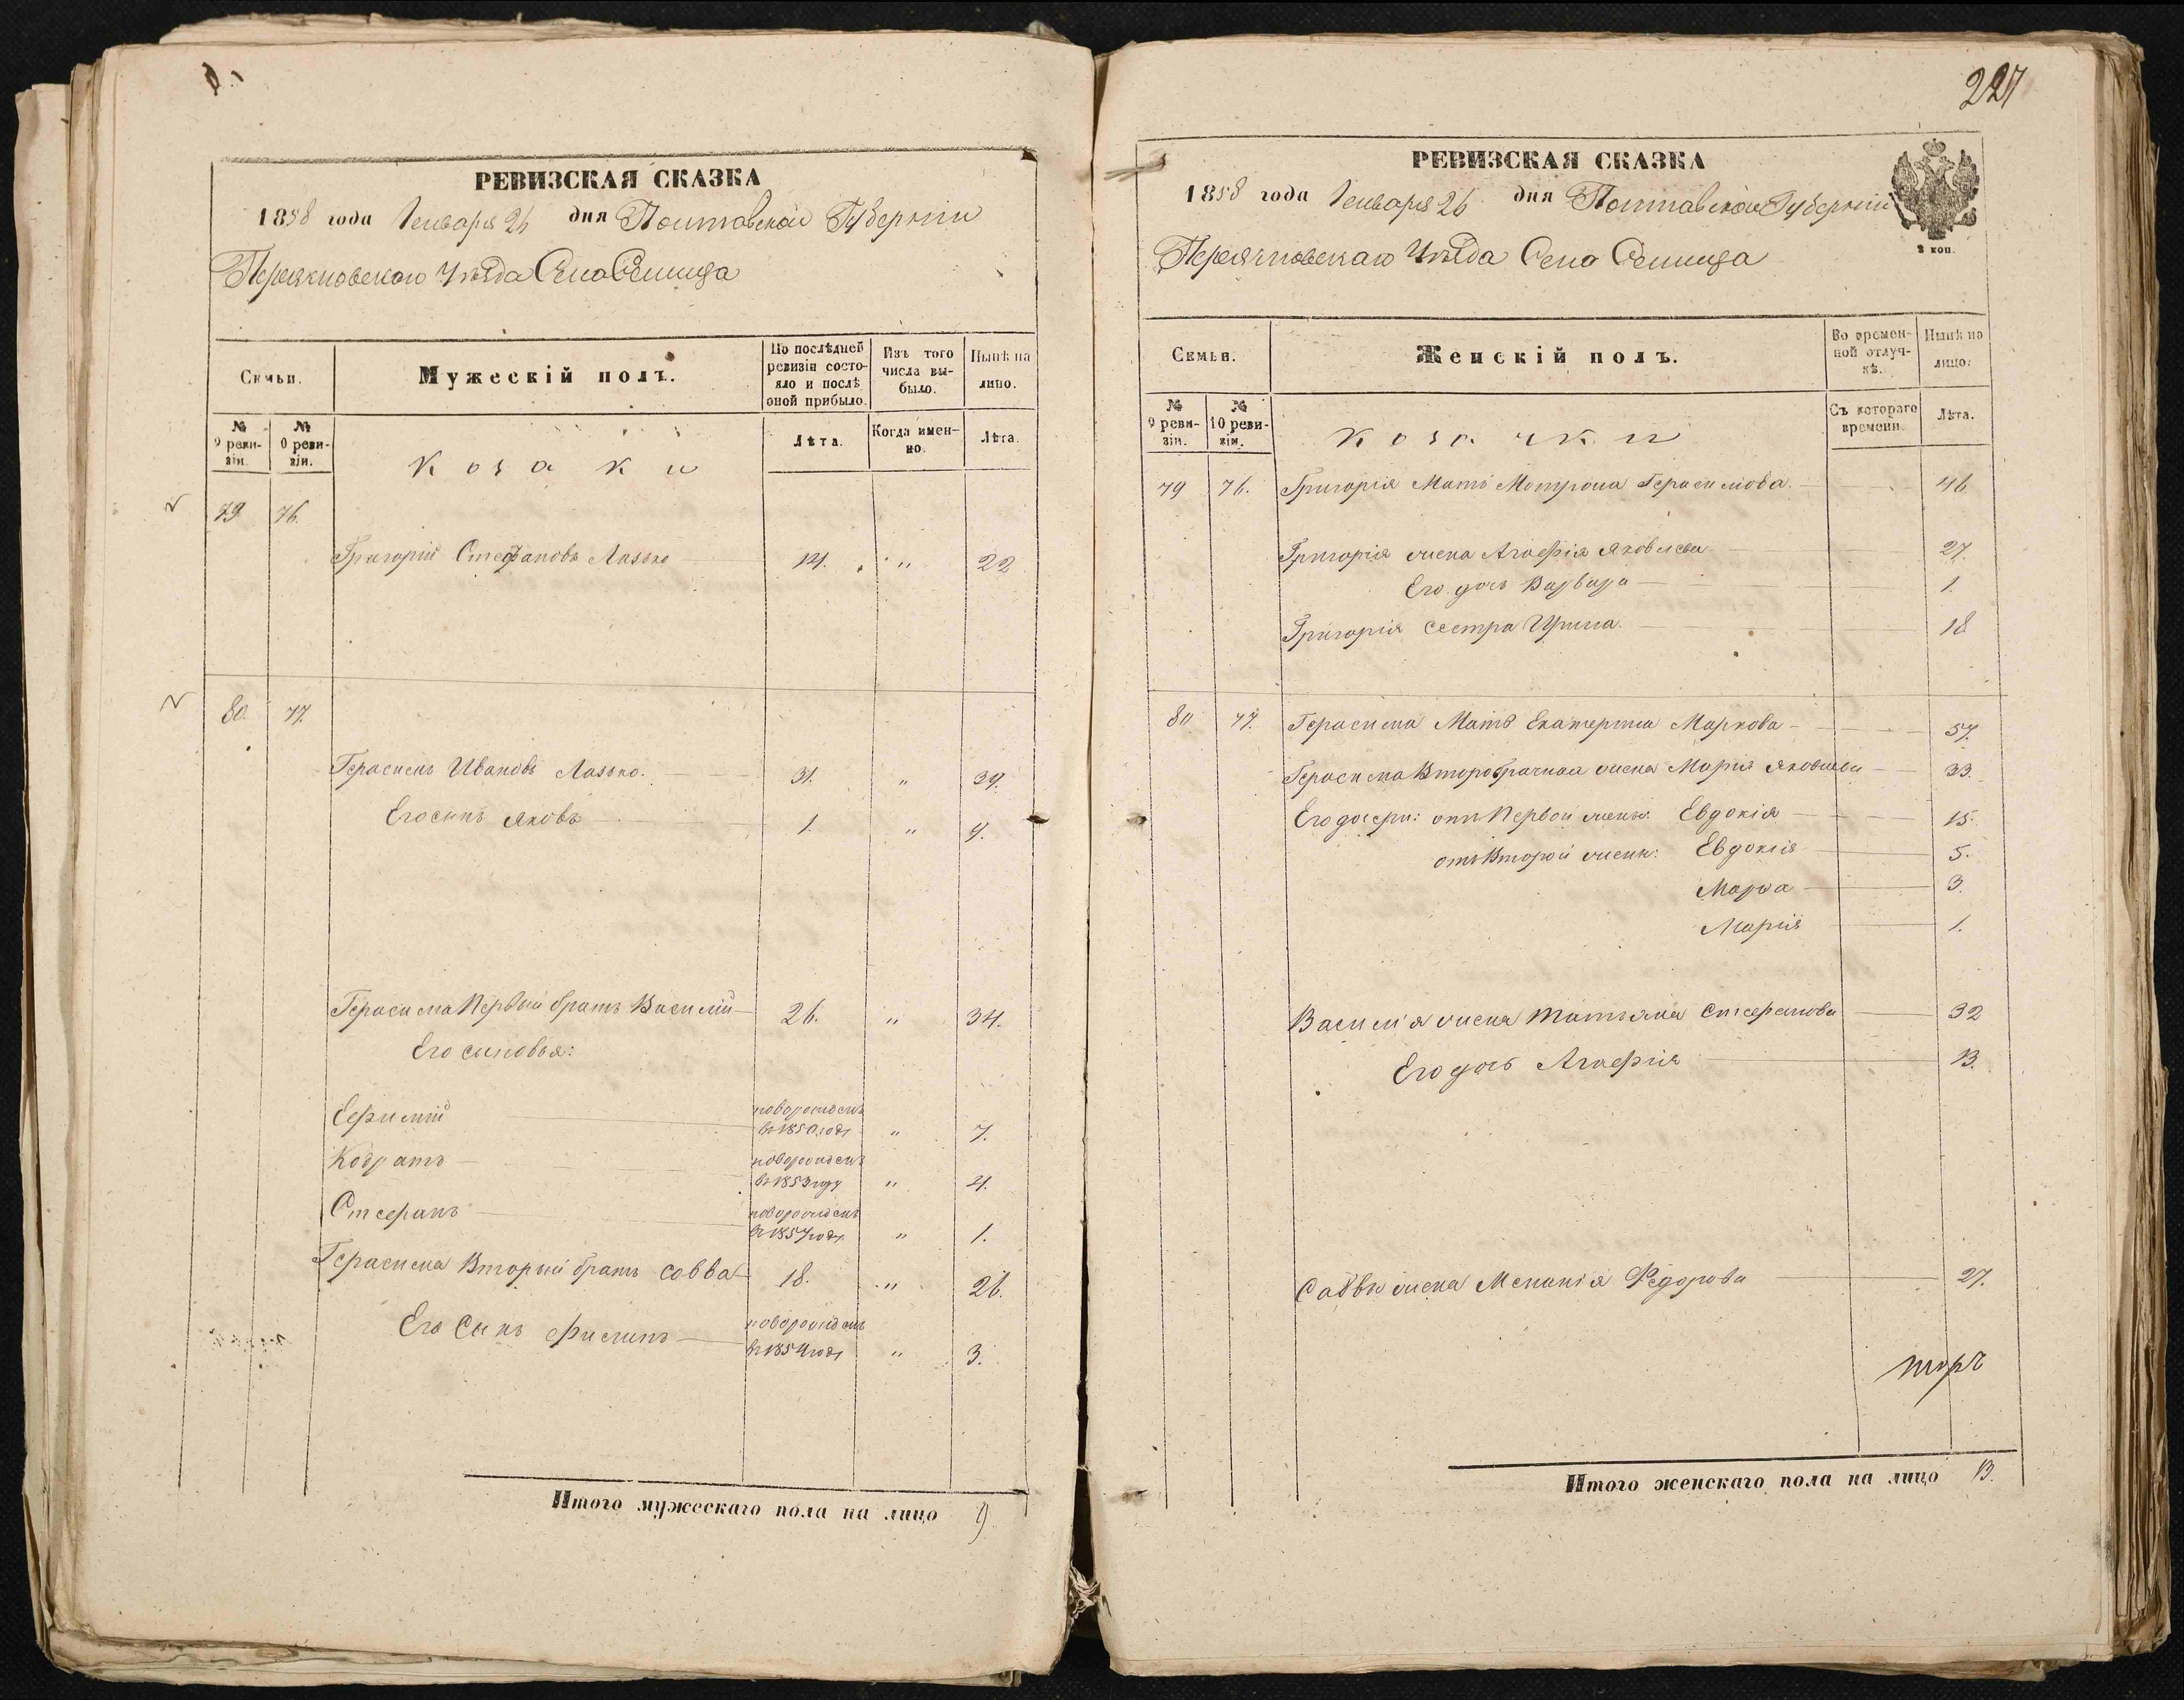 РЕВИЗСКАЯ СКАЗКА
1858 года Генваря 26 дня Полтавской Губернии
Переяславскаго Уѣзда Село
Семьи.
Мужескій полъ.
По послѣдней ревизіи состояло и послѣ оной прибыло.
Изъ того числа выбыло.
Нынѣ на лицо.
№ 9 ревизіи.
№ 10 ревизіи.
козаки
Лѣта.
Когда именно.
Лѣта.
79 76.
Григорій Стефановъ Лазько 14. " 22
80. 77.
Герасимъ Ивановъ Лазько. 31. " 39.
Его сынъ Яковъ 1. " 9.
Герасима Первый братъ Василій 26. " 34.
Его сыновья:
Ефимій новорожденъ в 1850 годѣ " 7.
Кодратъ новорожденъ в 1853 году " 4.
Стефанъ новорожденъ в 1857 годѣ " 1.
Герасима Вторый братъ Савва 18. " 26.
Его Сынъ Филипъ новорожденъ в 1854 годѣ " 3.
Итого мужескаго пола на лицо 9
227
РЕВИЗСКАЯ СКАЗКА
1858 года Генваря 26 дня Полтавской Губернии
2 коп.
Переяславскаго Уѣзда Село
Семьи.
Женскій полъ.
Во временной отлучкѣ.
Нынѣ на лицо.
№ 9 ревизіи.
№ 10 ревизіи.
козачки
Съ котораго времени.
Лѣта.
79 76. Григорія Мать Мотрона Герасимова. 46
Григорія жена Агафія Яковлева 27.
Его дочь Варвара 1.
Григорія сестра Ирина. 18
80 77. Герасима Мать Екатерина Маркова 57.
Герасима Второбрачная жена Марія Яковлева 33.
Его дочери: отъ Первой жены: Евдокія 15.
отъ Второй жены: Евдокія 5.
Марѳа 3.
Марія 1.
Василія жена Татьяна Стефанова 32
Его дочь Агафія 13.
Саввы жена Меланія Федорова 27.
Итого женскаго пола на лицо 13.